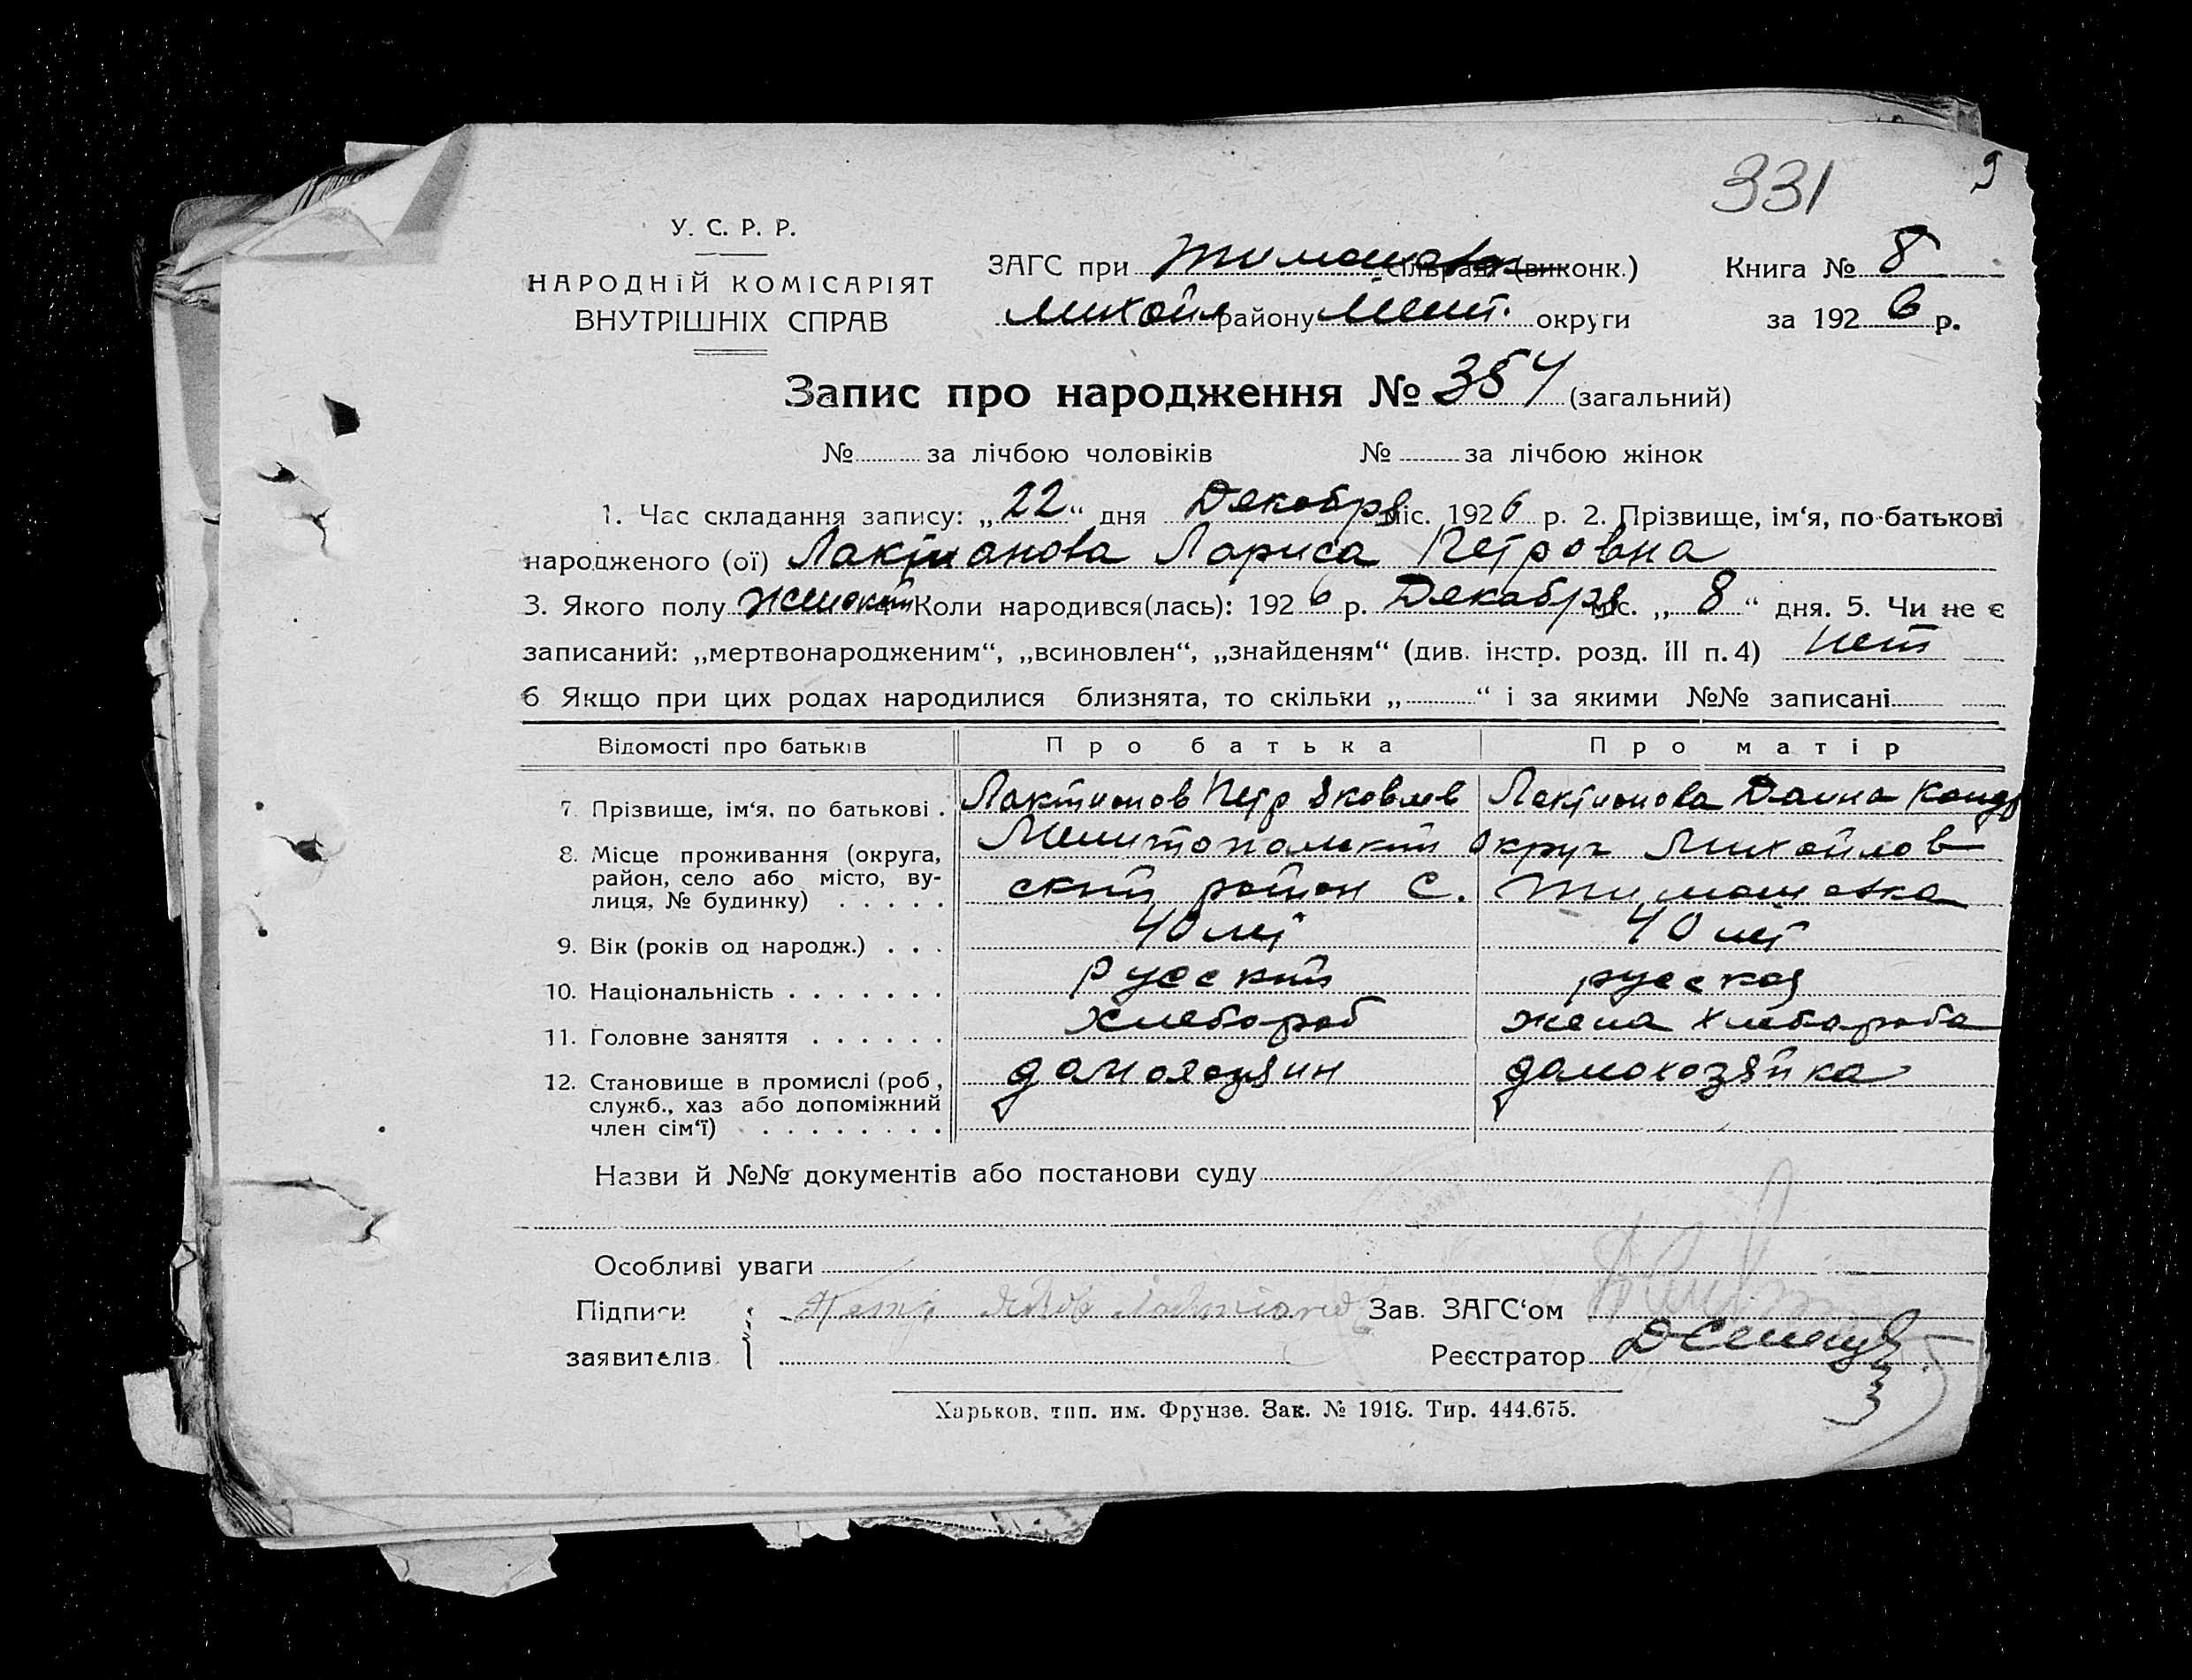 331
9
У. С. Р. Р.
НАРОДНІЙ КОМІСАРІЯТ
ВНУТРІШНІХ СПРАВ
ЗАГС при Тимашовск сільраді (виконк.)
Михайл району Мелит. округи
Книга № 8
за 1926 р.
Запис про народження № 354 (загальний)
№ за лічбою чоловіків № за лічбою жінок
1. Час складання запису: „22“ дня Декабря міс. 1926 р. 2. Прізвище, ім‘я, по-батькові
народженого (ої) Лактианова Лариса Петровна
3. Якого полу женский 4. Коли народився(лась): 1926 р. Декабря міс. „8“ дня. 5. Чи не є
записаний: „мертвонародженим“, „всиновлен“, „знайденям“ (див. інстр. розд. III п. 4) нет
6 Якщо при цих родах народилися близнята, то скільки „ “ і за якими №№ записані
Відомості про батьків Про батька Про матір
7. Прізвище, ім‘я, по батькові . Лактионов Петр Яковлев Лактионова Канд
8. Місце проживання (округа, Мелитопольский Округ Михайлов
район, село або місто, ву- ский район с. Тимашовка
лиця, № будинку) . . . . .
9. Вік (років од народж.) . . . 40 лет 40 лет
10. Національність . . . . . . . русский русская
11. Головне заняття . . . . . . хлебороб жена хлебароба
12. Становище в промислі (роб, домохозяин домохозяйка
служб., хаз або допоміжний
член сім‘ї) . . . . . . . .
Назви й №№ документів або постанови суду
Особливі уваги
Підписи Петр Зав. ЗАГС‘ом
заявителів Реєстратор
Харьков, тип. им. Фрунзе. Зак. № 1918. Тир. 444.675.